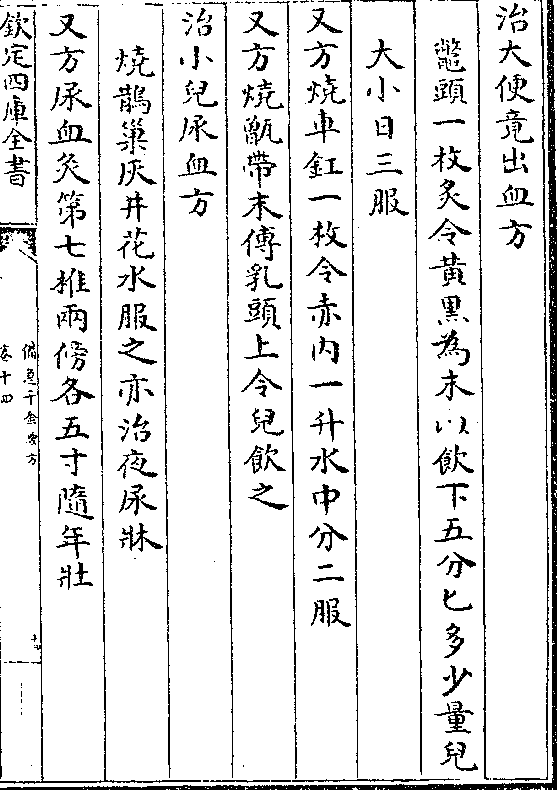 治大便竟出血方
鼈頭一枚炙令黃黒為末以飲下五分匕多少量兒
大小日三服
又方燒車釭一枚令赤内一升水中分二服
又方燒甑帶末傅乳頭上令兒飲之
治小兒尿血方
燒鵲巢灰井花水服之亦治夜尿牀
又方尿血灸第七椎兩傍各五寸隨年壯
欽定四庫全書
備急千金要方
卷十四